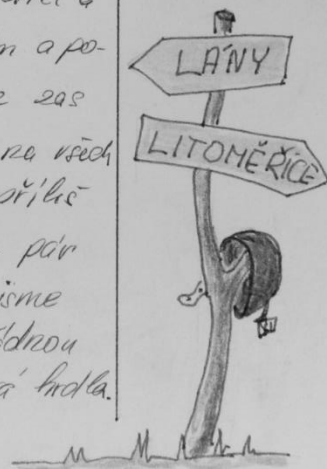 m a po-
zas
za všech
příliš
pár
jsme
hrdla.
LÁNY
LITOMĚŘICE